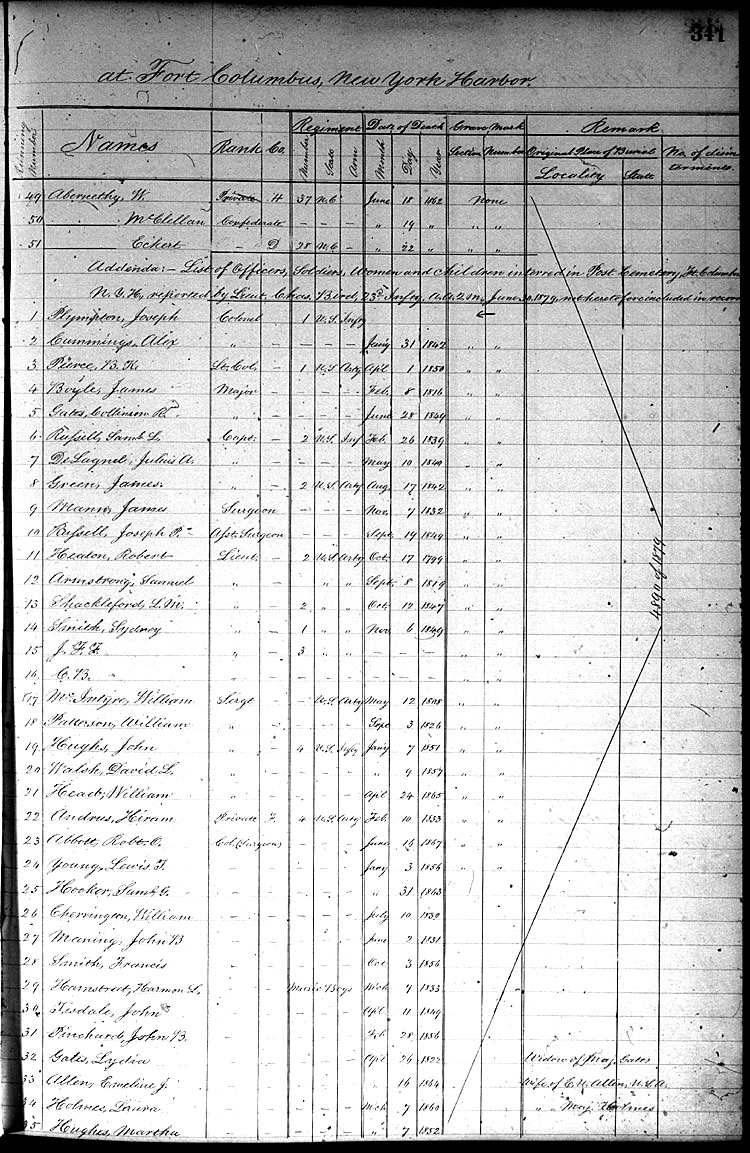 341
at Fort Columbus, New York Harbor.
Running Number Names Rank Co. Regiment Date of Death Grave Mark Remark
Number State Arm Month Day Year Section Number Original Place of Burial No. of disin
terments.
Locality State
49 Abernethy, W. Private H 37 N.C. June 18 1862 None
50 McClellan Confederate — — — — " 19 " " "
51 Eckert — D 28 N.C. — " 22 " " "
Addenda:— List of Officers, Soldiers, Women and Children interred in Post Cemetery, Ft. Columbus
N.Y.H., reported by Lieut. Chas. Bird, 23d Infty, A.A.Q.M., June 1879, not heretofore included in record
1 Plympton, Joseph Colonel 1 U.S. Infty
2 Cummings, Alex " — — — — Jany 31 1842 " "
3 Pierce, B.K. Lt. Col. — 1 U.S. Arty Apl 1 1850 " "
4 Boyle, James Major — — — — Feb. 8 1816 " "
5 Gates, Collinson R. " — — — — June 28 1849 " "
6 Russell, Saml. L. Capt. — 2 U.S. Inf Feb. 26 1839 " "
7 DeLagnel, Julius A. " — — — — May 10 1840 " "
8 Green, James. " — 2 U.S. Arty Aug. 17 1842 " "
9 Mann, James Surgeon — — — Nov. 7 1832 " "
10 Russell, Joseph P. Asst. Surgeon — — — Sept. 19 1849 " "
11 Heaton, Robert Lieut. — 2 U.S. Arty Oct. 17 1799 " "
12 Armstrong, Samuel " — — " " Sept. 8 1819 " "
13 Shackleford, L.M. " — 2 " " Oct 12 1847 " "
14 Smith, Sydney " — 1 " " Nov. 6 1849 " "
15 J.F.F. " — 3 " " — — — " "
16 C.B. — — — — — — — — " "
17 McIntyre, William Sergt — U.S. Arty May 12 1808 " "
18 Patterson, William " — — — — Sept 3 1826 " "
19 Hughs, John " — 4 U.S. Infty Jany 7 1851 " "
20 Walsh, David L. " — — — — " 9 1857 " "
21 Head, William " — — — — Apl 24 1865 " "
22 Andrus, Hiram Private F. 4 U.S. Arty Feb 10 1833 " "
23 Abbott, Robt. O. Col. (Surgeon) — — — June 16 1867 " "
24 Young, Lewis T. — — — — — Jany 3 1856 " "
25 Hooker, Saml. G. — — — — — " 31 1863
26 Cherrington, William — — — — — July 10 1830
27 Maning, John B — — — — — June 2 1831
28 Smith, Francis — — — — — Oct 3 1856
29 Hamstreet, Harmon L. — — Music Boys Mch 9 1833
30 Tisdale, John — — — — — Apl 11 1849
31 Pinchard, John B. — — — — — Feb 28 1856
32 Gates, Lydia — — — — — Apl 26 1822 Widow of Maj. Gates
33 Allen, Emeline J. — — — — — " 16 1864 Wife of C.N. Allen, U.S.A.
34 Holmes, Laura — — — — — Mch 7 1860 " " Maj. Holmes
35 Hughes, Martha — — — — — " 7 1852
4890 of 1879